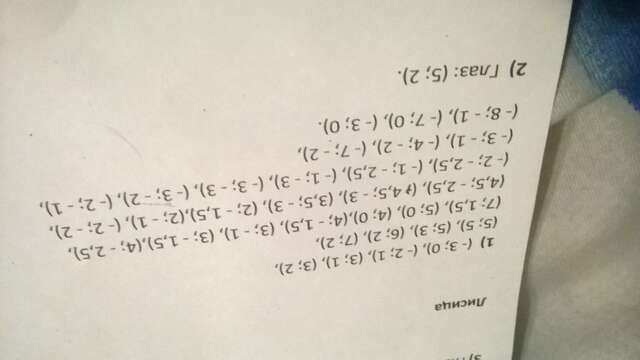 Лисица
1) (- 3; 0), (- 2; 1), (3; 1), (3; 2),
(5; 5), (5; 3), (6; 2), (7; 2),
(7; 1,5), (5; 0), (4; 0),(4; - 1,5), (3; - 1), (3; - 1,5),(4; - 2,5),
(4,5; - 2,5), (4,5; - 3), (3,5; - 3), (2; - 1,5),(2; - 1), (- 2; - 2),
(- 2; - 2,5), (- 1; - 2,5), (- 1; - 3), (- 3; - 3), (- 3; - 2), (- 2; - 1),
(- 3; - 1), (- 4; - 2), (- 7; - 2),
(- 8; - 1), (- 7; 0), (- 3; 0).
2) Глаз: (5; 2).